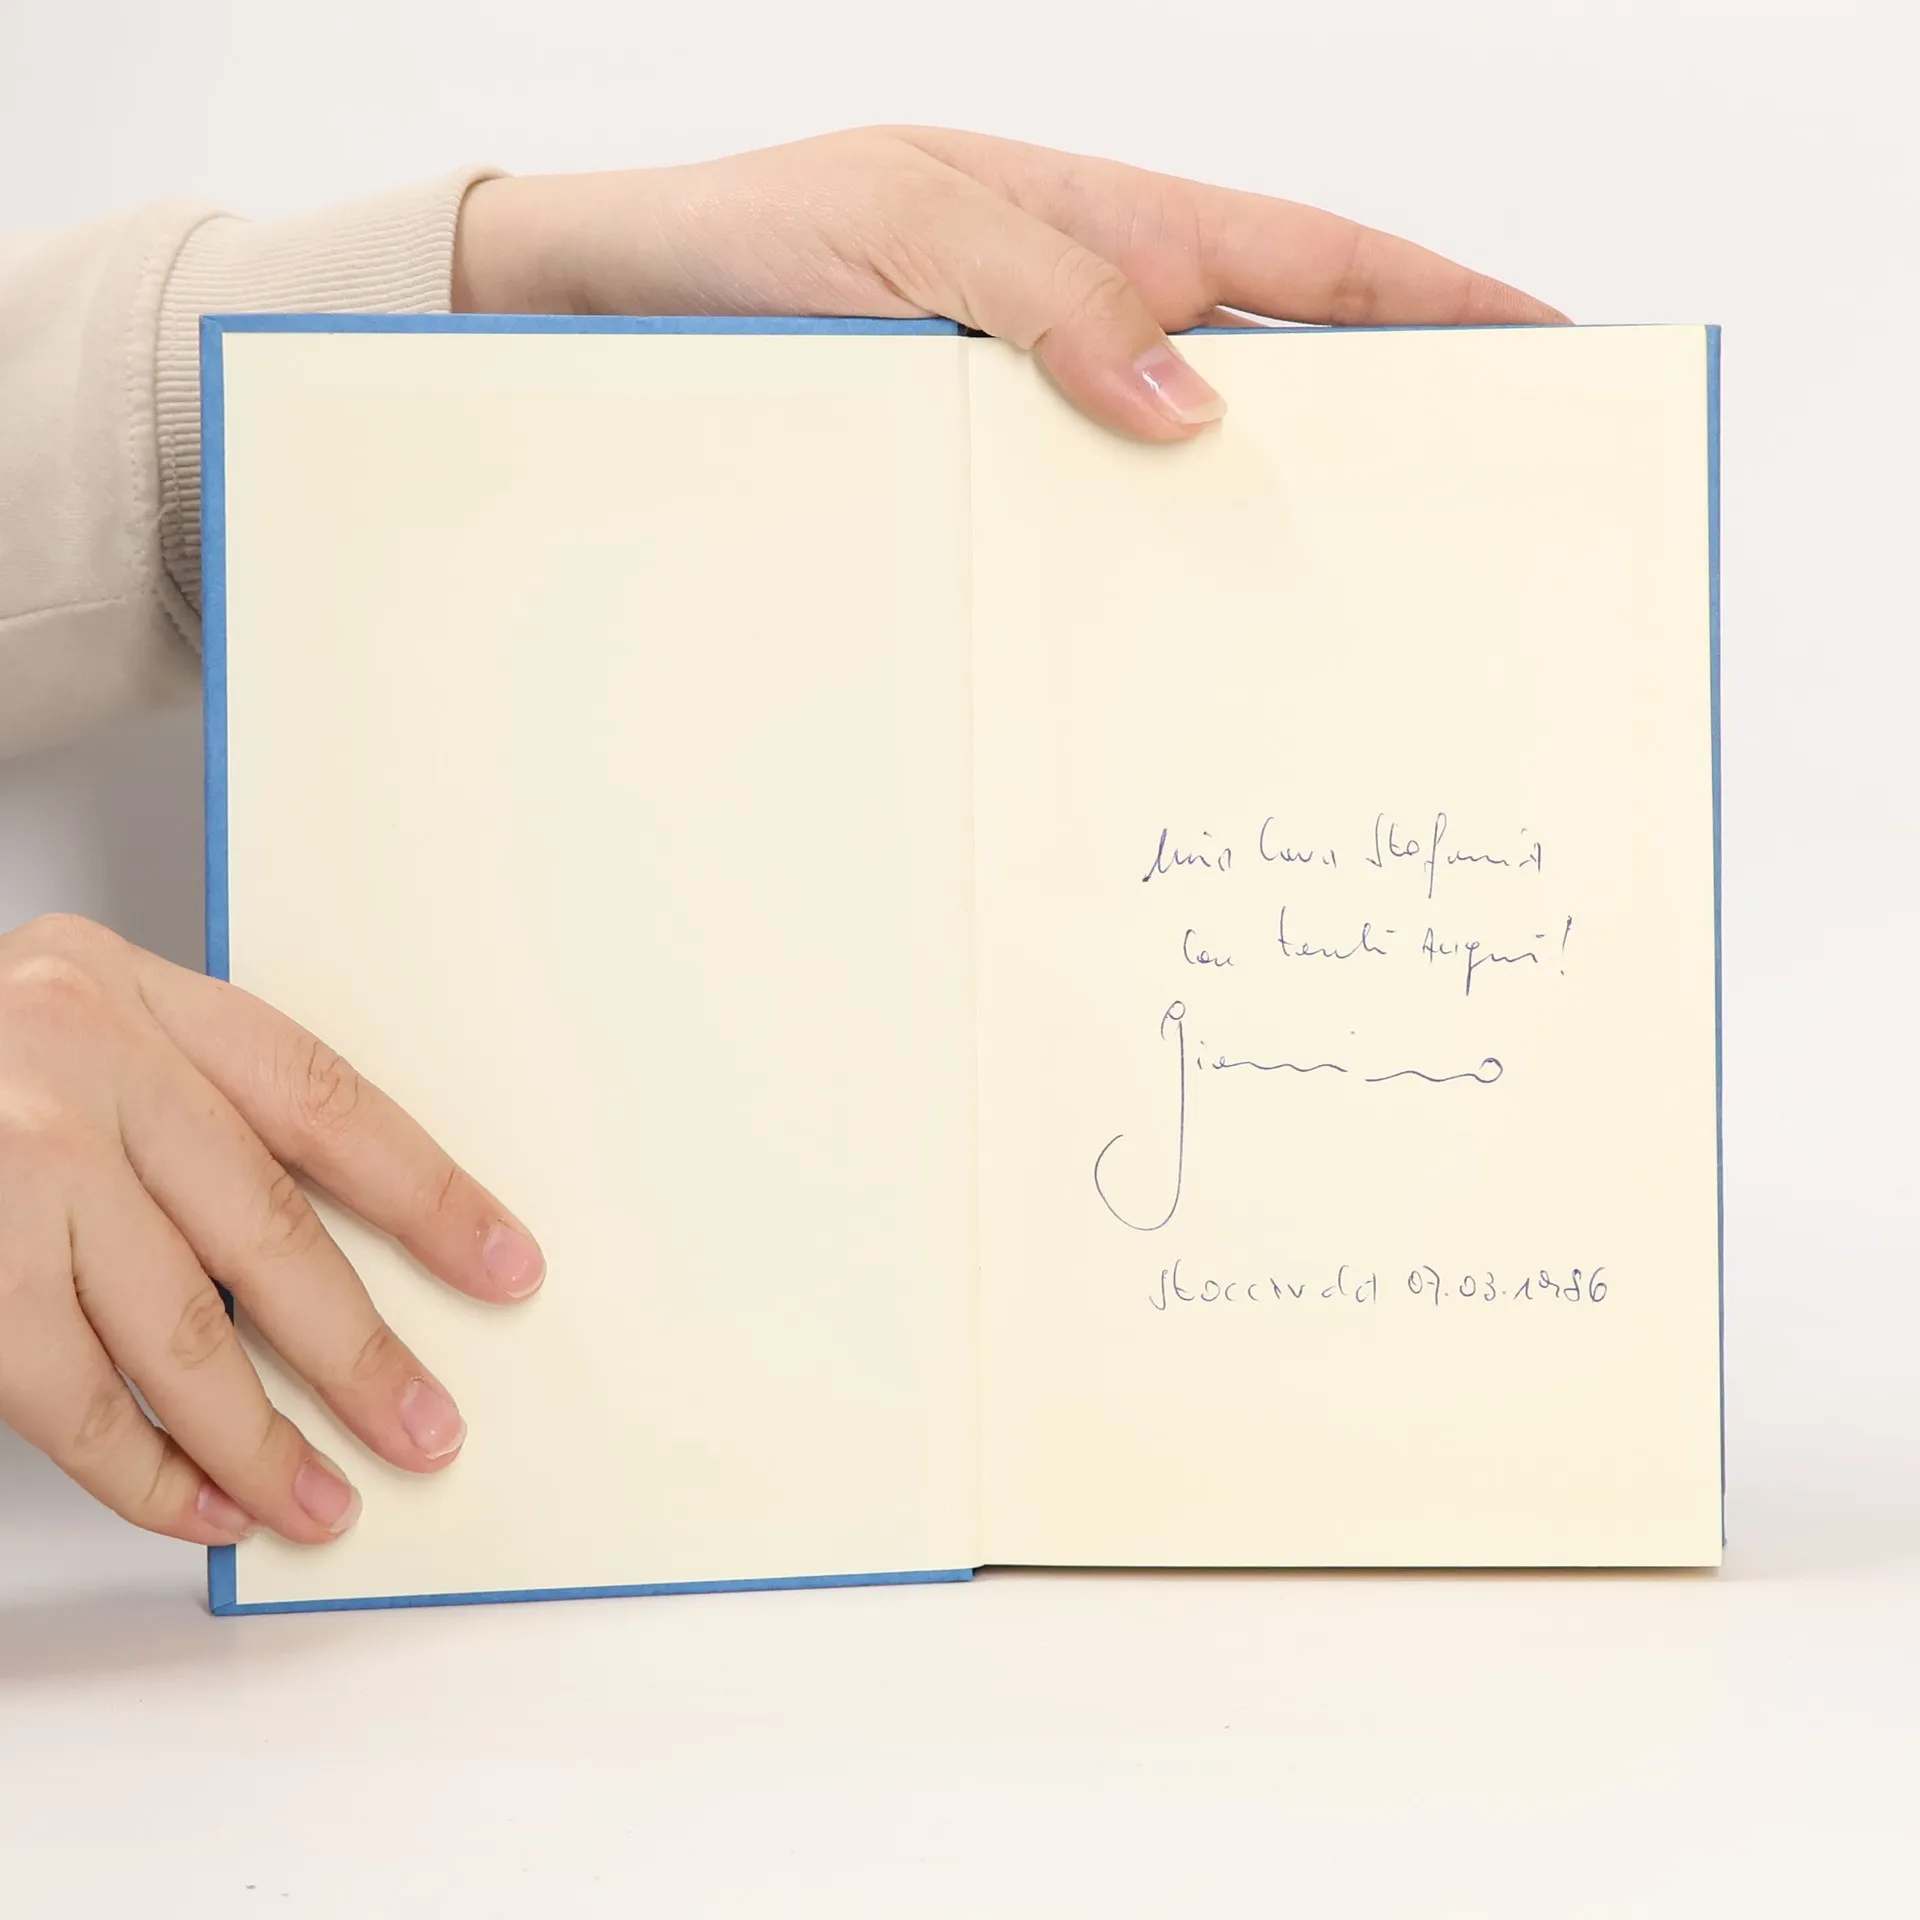 Mia Cara Stefania
Con tanti Auguri!
Giannino
Stoccarda 07.03.1986